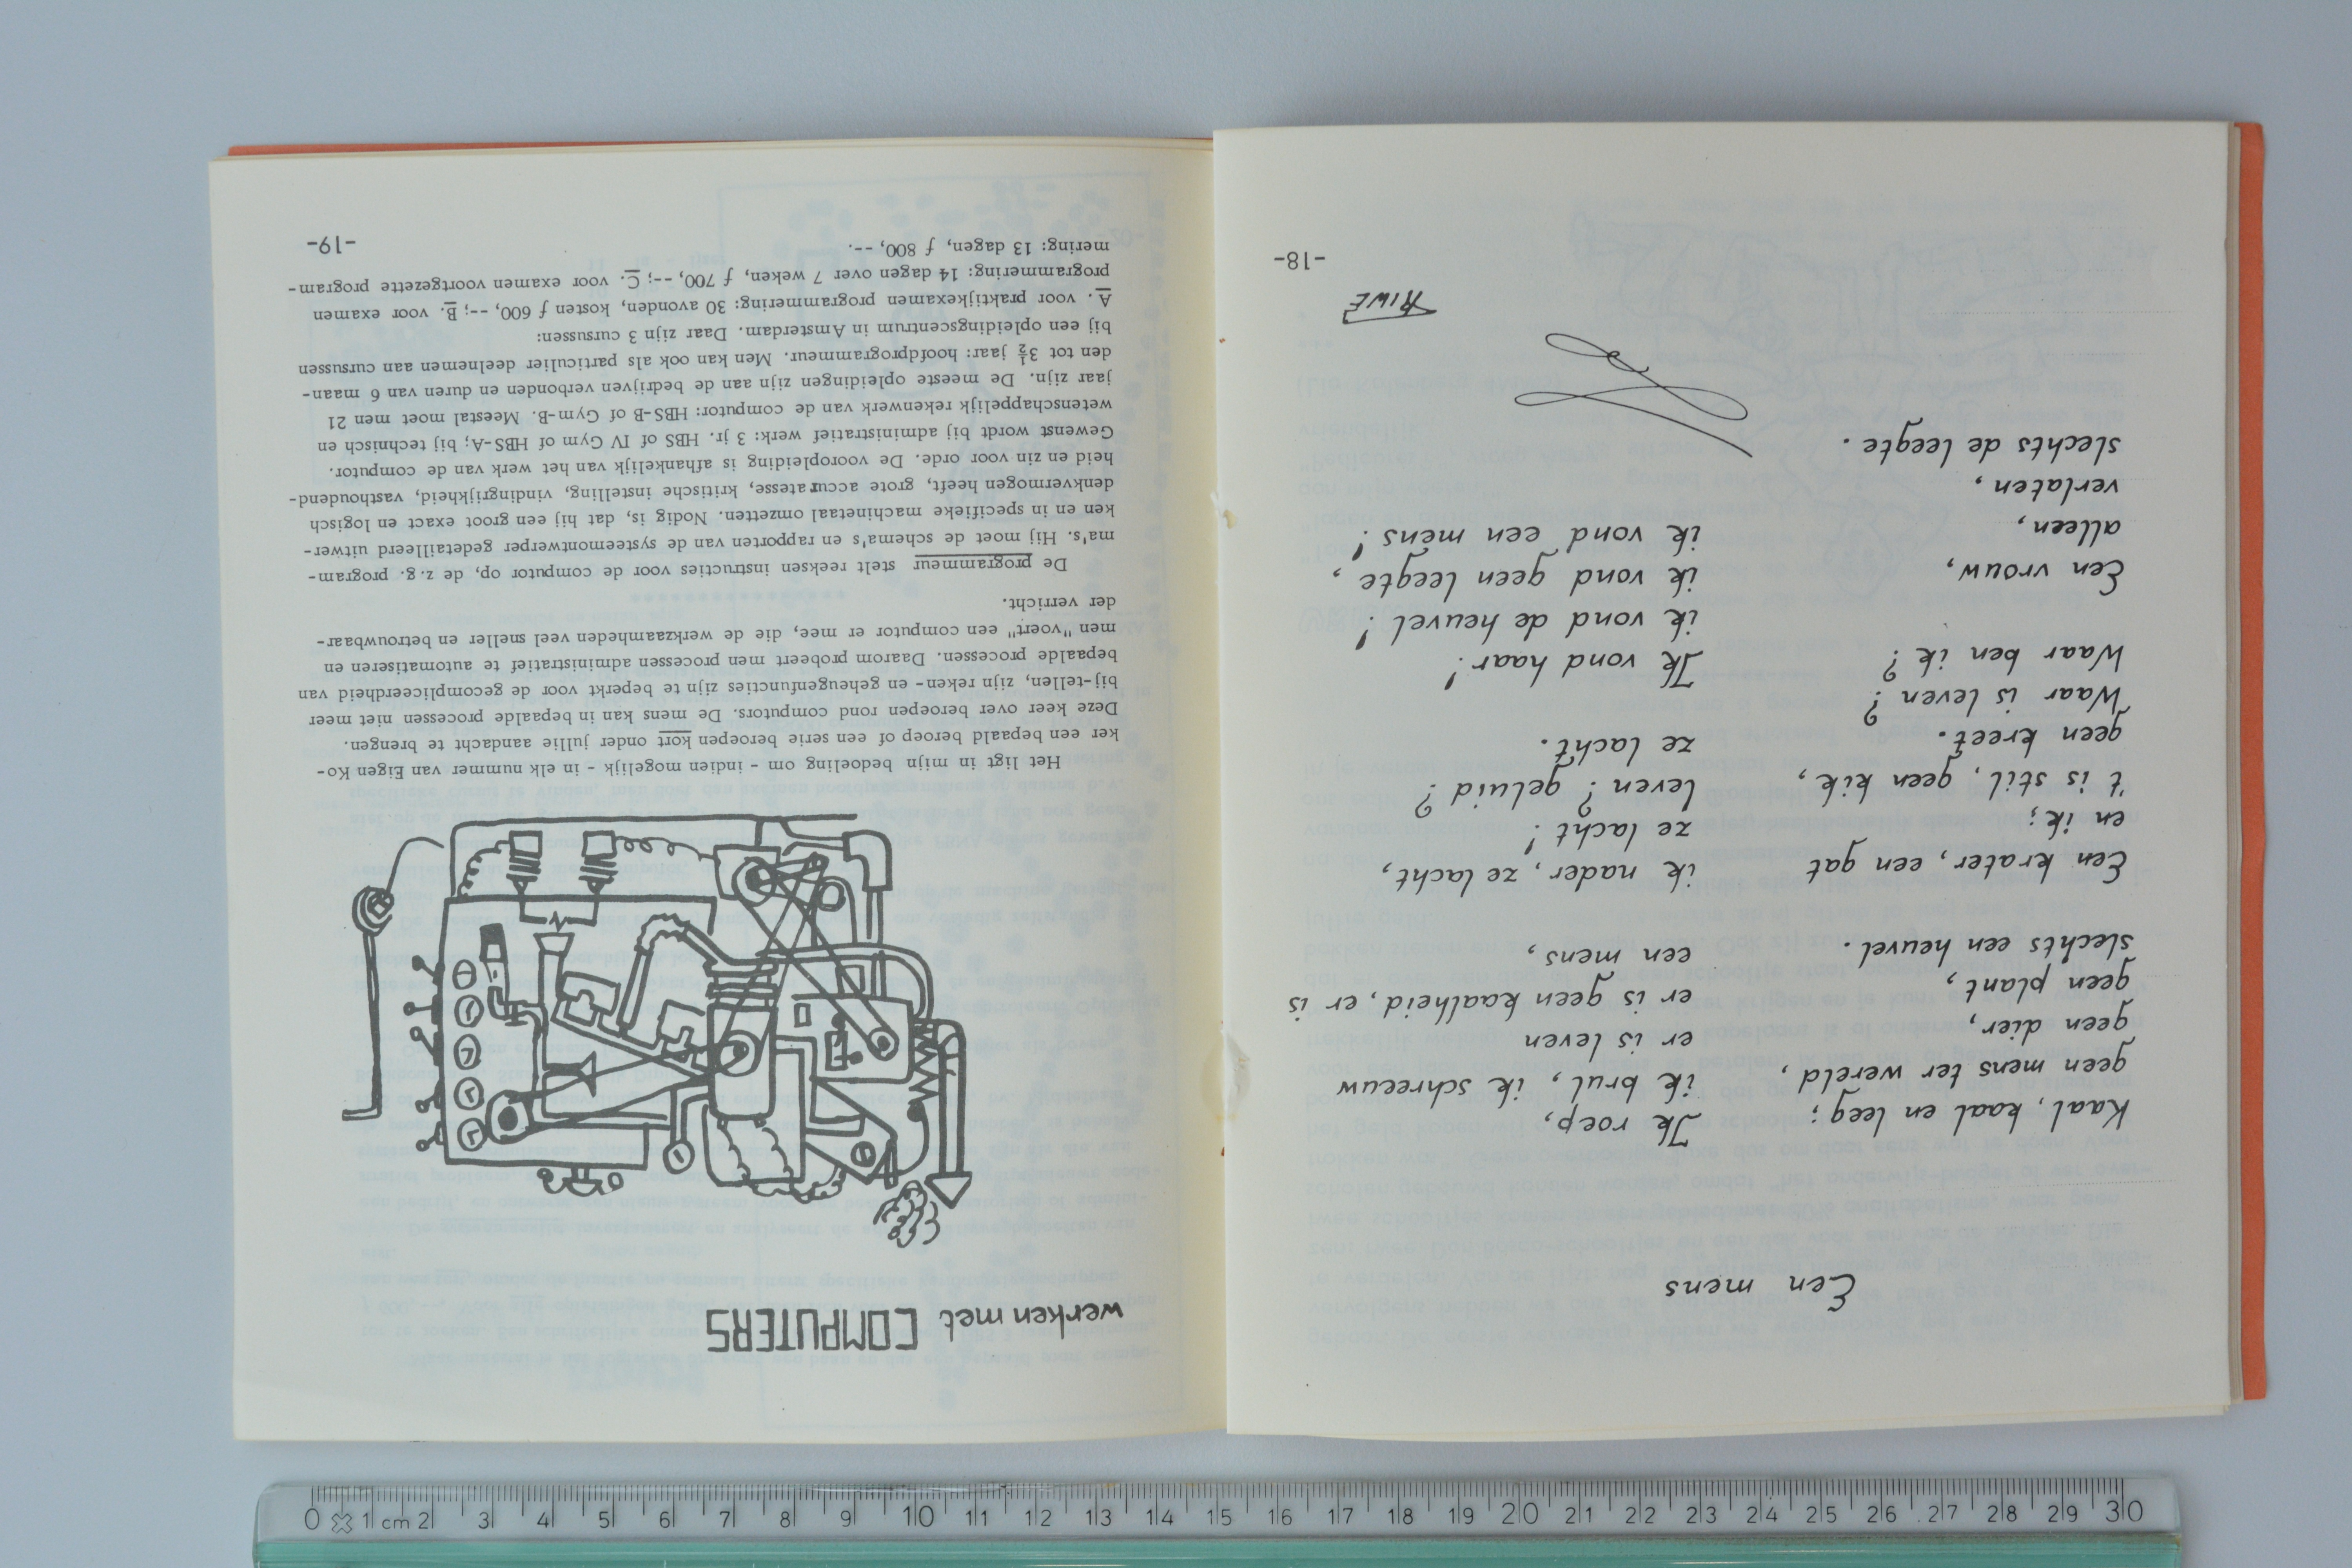 Een mens
Kaal, kaal en leeg;
geen mens ter wereld,
geen dier,
geen plant,
slechts een heuvel.
Een krater, een gat
en ik;
't is stil, geen kik,
geen kreet.
Waar is leven?
Waar ben ik?
Een vrouw,
alleen,
verlaten,
slechts de leegte.
Ik roep,
ik brul, ik schreeuw
er is leven
er is geen kaalheid, er is
een mens,
ik nader, ze lacht,
ze lacht!
leven? geluid?
ze lacht.
Ik vond haar!
ik vond de heuvel!
ik vond geen leegte,
ik vond een mens!
RIWE
-18-
werken met COMPUTERS
Het ligt in mijn bedoeling om - indien mogelijk - in elk nummer van Eigen Ko-
ker een bepaald beroep of een serie beroepen kort onder jullie aandacht te brengen.
Deze keer over beroepen rond computors. De mens kan in bepaalde processen niet meer
bij-tellen, zijn reken- en geheugenfuncties zijn te beperkt voor de gecompliceerdheid van
bepaalde processen. Daarom probeert men processen administratief te automatiseren en
men "voert" een computor er mee, die de werkzaamheden veel sneller en betrouwbaar-
der verricht.
De programmeur stelt reeksen instructies voor de computor op, de z.g. program-
ma's. Hij moet de schema's en rapporten van de systeemontwerper gedetailleerd uitwer-
ken en in specifieke machinetaal omzetten. Nodig is, dat hij een groot exact en logisch
denkvermogen heeft, grote accuratesse, kritische instelling, vindingrijkheid, vasthoudend-
heid en zin voor orde. De vooropleiding is afhankelijk van het werk van de computor.
Gewenst wordt bij administratief werk: 3 jr. HBS of IV Gym of HBS-A; bij technisch en
wetenschappelijk rekenwerk van de computor: HBS-B of Gym-B. Meestal moet men 21
jaar zijn. De meeste opleidingen zijn aan de bedrijven verbonden en duren van 6 maan-
den tot 3½ jaar: hoofdprogrammeur. Men kan ook als particulier deelnemen aan cursussen
bij een opleidingscentrum in Amsterdam. Daar zijn 3 cursussen:
A. voor praktijkexamen programmering: 30 avonden, kosten ƒ 600, --; B. voor examen
programmering: 14 dagen over 7 weken, ƒ 700, --; C. voor examen voortgezette program-
mering: 13 dagen, ƒ 800, --.
-19-
0 1 cm 2 3 4 5 6 7 8 9 10 11 12 13 14 15 16 17 18 19 20 21 22 23 24 25 26 27 28 29 30